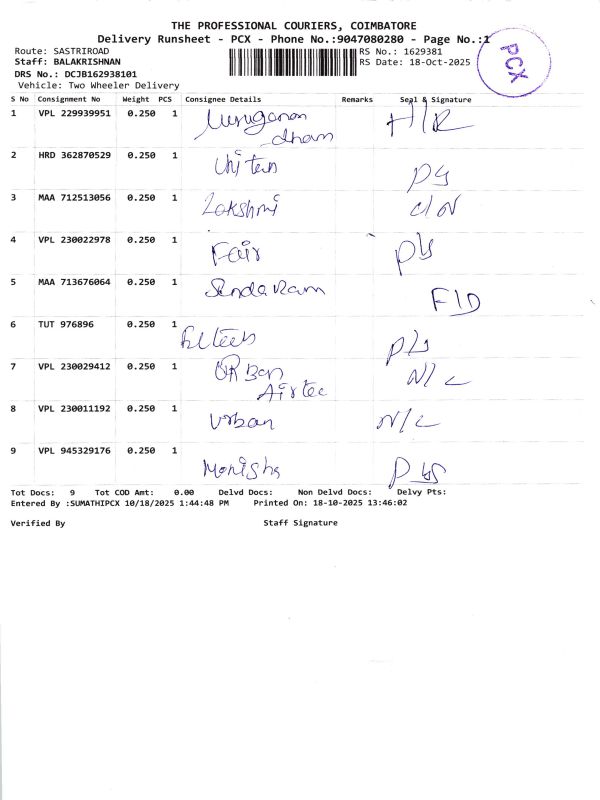 THE PROFESSIONAL COURIERS, COIMBATORE
Delivery Runsheet - PCX - Phone No.:9047080280 - Page No.:1
Route: SASTRIROAD
RS No.: 1629381
Staff: BALAKRISHNAN
RS Date: 18-Oct-2025
DRS No.: DCJB162938101
Vehicle: Two Wheeler Delivery
PCX
S No Consignment No Weight PCS Consignee Details Remarks Seal & Signature
1 VPL 229939951 0.250 1 H/R
2 HRD 362870529 0.250 1
3 MAA 712513056 0.250 1 Lakshmi
4 VPL 230022978 0.250 1 Fair
5 MAA 713676064 0.250 1 F/D
6 TUT 976896 0.250 1
7 VPL 230029412 0.250 1 URBan N/C
Airtec
8 VPL 230011192 0.250 1 Urban N/C
9 VPL 945329176 0.250 1 Monisha
Tot Docs: 9 Tot COD Amt: 0.00 Delvd Docs: Non Delvd Docs: Delvy Pts:
Entered By :SUMATHIPCX 10/18/2025 1:44:48 PM Printed On: 18-10-2025 13:46:02
Verified By Staff Signature